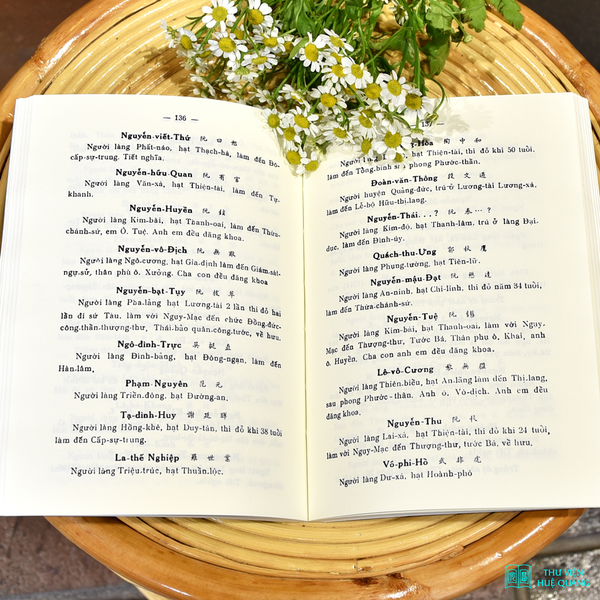 — 136 —
Nguyễn-viết-Thứ 阮曰
Người làng Phất-náo, hạt Thạch-hà, làm đến Đô-
cấp-sự-trung. Tiết nghĩa.
Nguyễn-hữu-Quan 阮有官
Người làng Văn-xá, hạt Thiện-tài, làm đến Tự-
khanh.
Nguyễn-Huyền 阮
Người làng Kim-bài, hạt Thanh-oai, làm đến Thừa-
chánh-sứ, em Ô. Tuệ. Anh em đều đăng khoa.
Nguyễn-vô-Địch 阮無敵
Người làng Ngô-cương, hạt Gia-định làm đến Giám-sát-
ngự-sử, thân phủ ô. Xưởng. Cha con đều đăng khoa
Nguyễn-bạt-Tụy 阮拔萃
Người làng Pha-lảng, hạt Lương-tài 2 lần thi đỗ hai
lần đi sứ Tàu, làm với Ngụy-Mạc đến chức Đông-đức-
công-thần thượng-thư, Thái-bảo quân-công-tước, về hưu.
Ngô-đình-Trực 吳挺直
Người làng Đình-bảng, hạt Đông-ngạn, làm đến
Hàn-lâm,
Phạm-Nguyên 范元
Người làng Triền-đông, hạt Đường-an,
Tạ-đình-Huy 謝廷
Người làng Hồng-khê, hạt Duy-tân, thi đỗ khi 38 tuổi
làm đến Cấp-sự-trung.
La-thế Nghiệp 羅世業
Người làng Triệu-trúc, hạt Thuần-lộc.
137 —
-Hòa 陶中和
Người làng hạt Thiện-tài, thi đỗ khi 50 tuổi.
làm đến Tổng-binh sứ phong Phước-thần.
Đoàn-văn-Thông 段文通
Người huyện Quảng-đức, trú ở Lương-tài Lương-xá,
làm đến Lễ-bộ Hữu-thị-lang.
Nguyễn-Thái. . . ? 阮泰…?
Người làng Kim-độ, hạt Thanh-lâm, trú ở làng Đại-
dục, làm đến Đình-úy.
Quách-thu-Ưng 郭秋鷹
Người làng Phụng-tường, hạt Tiên-lữ.
Nguyễn-mậu-Đạt 阮懋達
Người làng An-ninh, hạt Chí-linh, thi đỗ năm 34 tuổi,
làm đến Thừa-chánh-sứ.
Nguyễn-Tuệ 阮
Người làng Kim-bài, hạt Thanh-oai, làm với Ngụy-
Mạc đến Thượng-thư, Tước Bá, Thân phụ ô, Khai, anh
ô, Huyền. Cha con anh em đều đăng khoa.
Lê-vô-Cương 黎無疆
Người làng Thiên-biểu, hạt An-lãng làm đến Thị-lang,
sau phong Phước-thần. Anh ô, Vô-địch. Anh em đều
đăng khoa.
Nguyễn-Thu 阮秋
Người làng Lai-xá, hạt Thiện-tài, thi đỗ khi 24 tuổi,
làm với Ngụy-Mạc đến Thượng-thư, tước Bá, về hưu.
Võ-phi-Hổ 武非虎
Người làng Dư-xá, hạt Hoành-phố
THƯ VIỆN
HUỆ QUANG